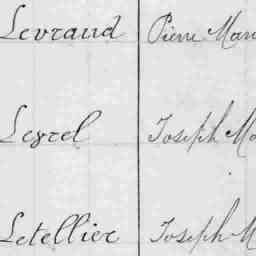 Levraud Pierre Mari
Leyrel Joseph Ma
Letellier Joseph M